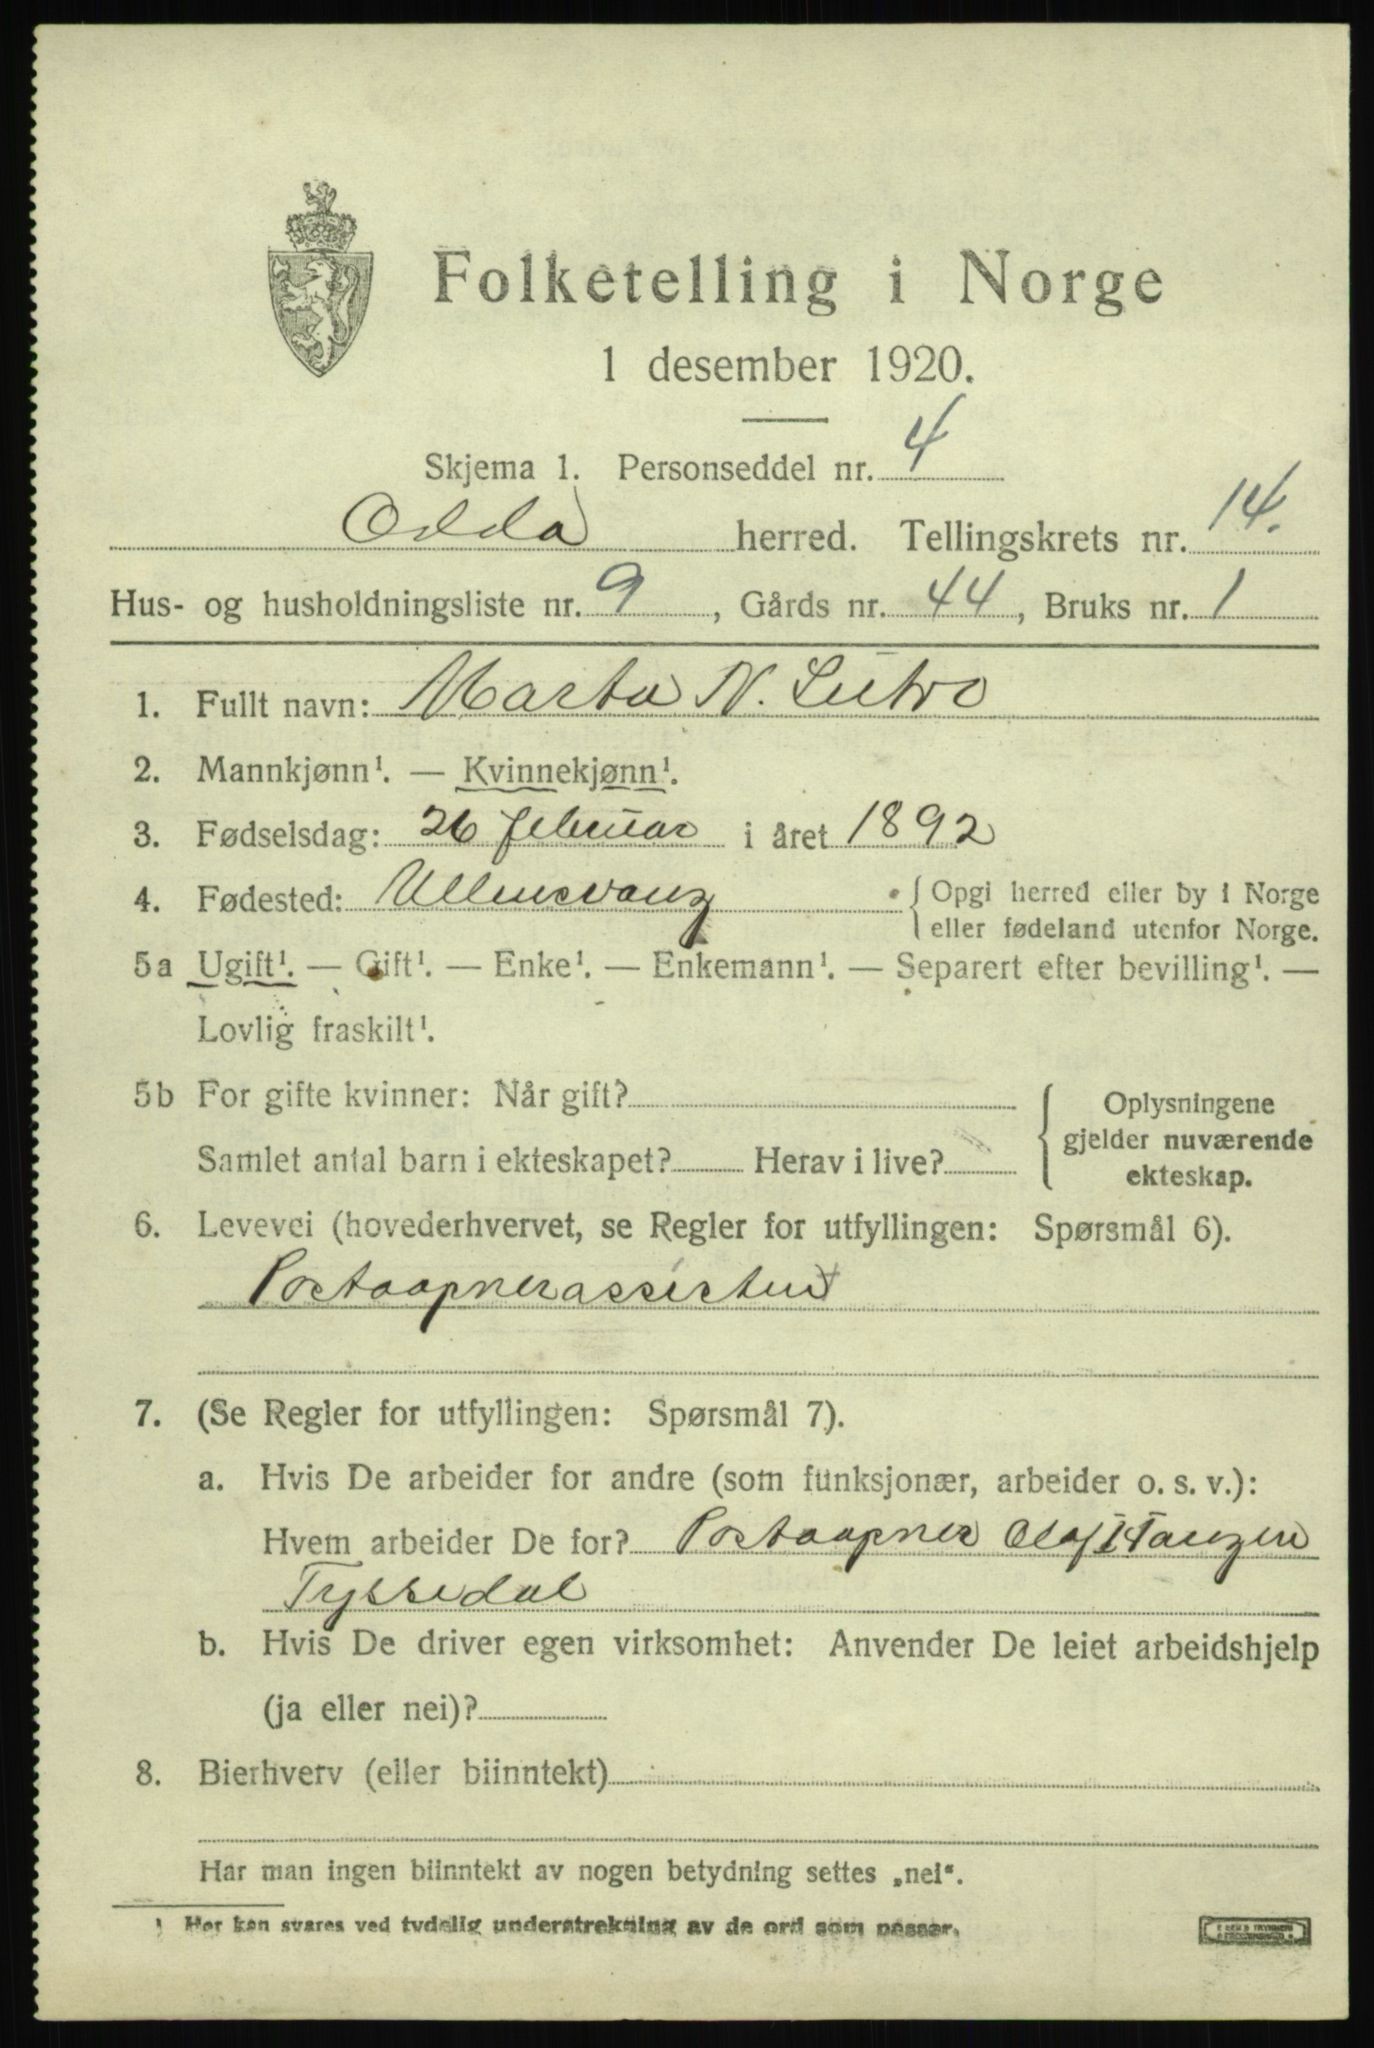 Folketelling i Norge
1 desember 1920.
Skjema 1. Personseddel nr. 4
Odda herred. Tellingskrets nr. 14.
Hus- og husholdningsliste nr. 9, Gårds nr. 44, Bruks nr. 1
1. Fullt navn: Marta N. Lutro
2. Mannkjønn¹. — Kvinnekjønn¹.
3. Fødselsdag: 26 februar i året 1892
4. Fødested: Ullensvang { Opgi herred eller by i Norge
eller fødeland utenfor Norge.
5a Ugift¹. — Gift¹. — Enke¹. — Enkemann¹. — Separert efter bevilling¹. —
Lovlig fraskilt¹.
5b For gifte kvinner: Når gift?
Samlet antal barn i ekteskapet? Herav i live?
{ Oplysningene
gjelder nuværende
ekteskap.
6. Levevei (hovederhvervet, se Regler for utfyllingen: Spørsmål 6).
Postaapnerassistent
7. (Se Regler for utfyllingen: Spørsmål 7).
a. Hvis De arbeider for andre (som funksjonær, arbeider o. s. v.):
Hvem arbeider De for? Postaapner Olaf
Tyssedal
b. Hvis De driver egen virksomhet: Anvender De leiet arbeidshjelp
(ja eller nei)?
8. Bierhverv (eller biinntekt)
Har man ingen biinntekt av nogen betydning settes „nei“.
¹ Her kan svares ved tydelig understrekning av de ord som passer.